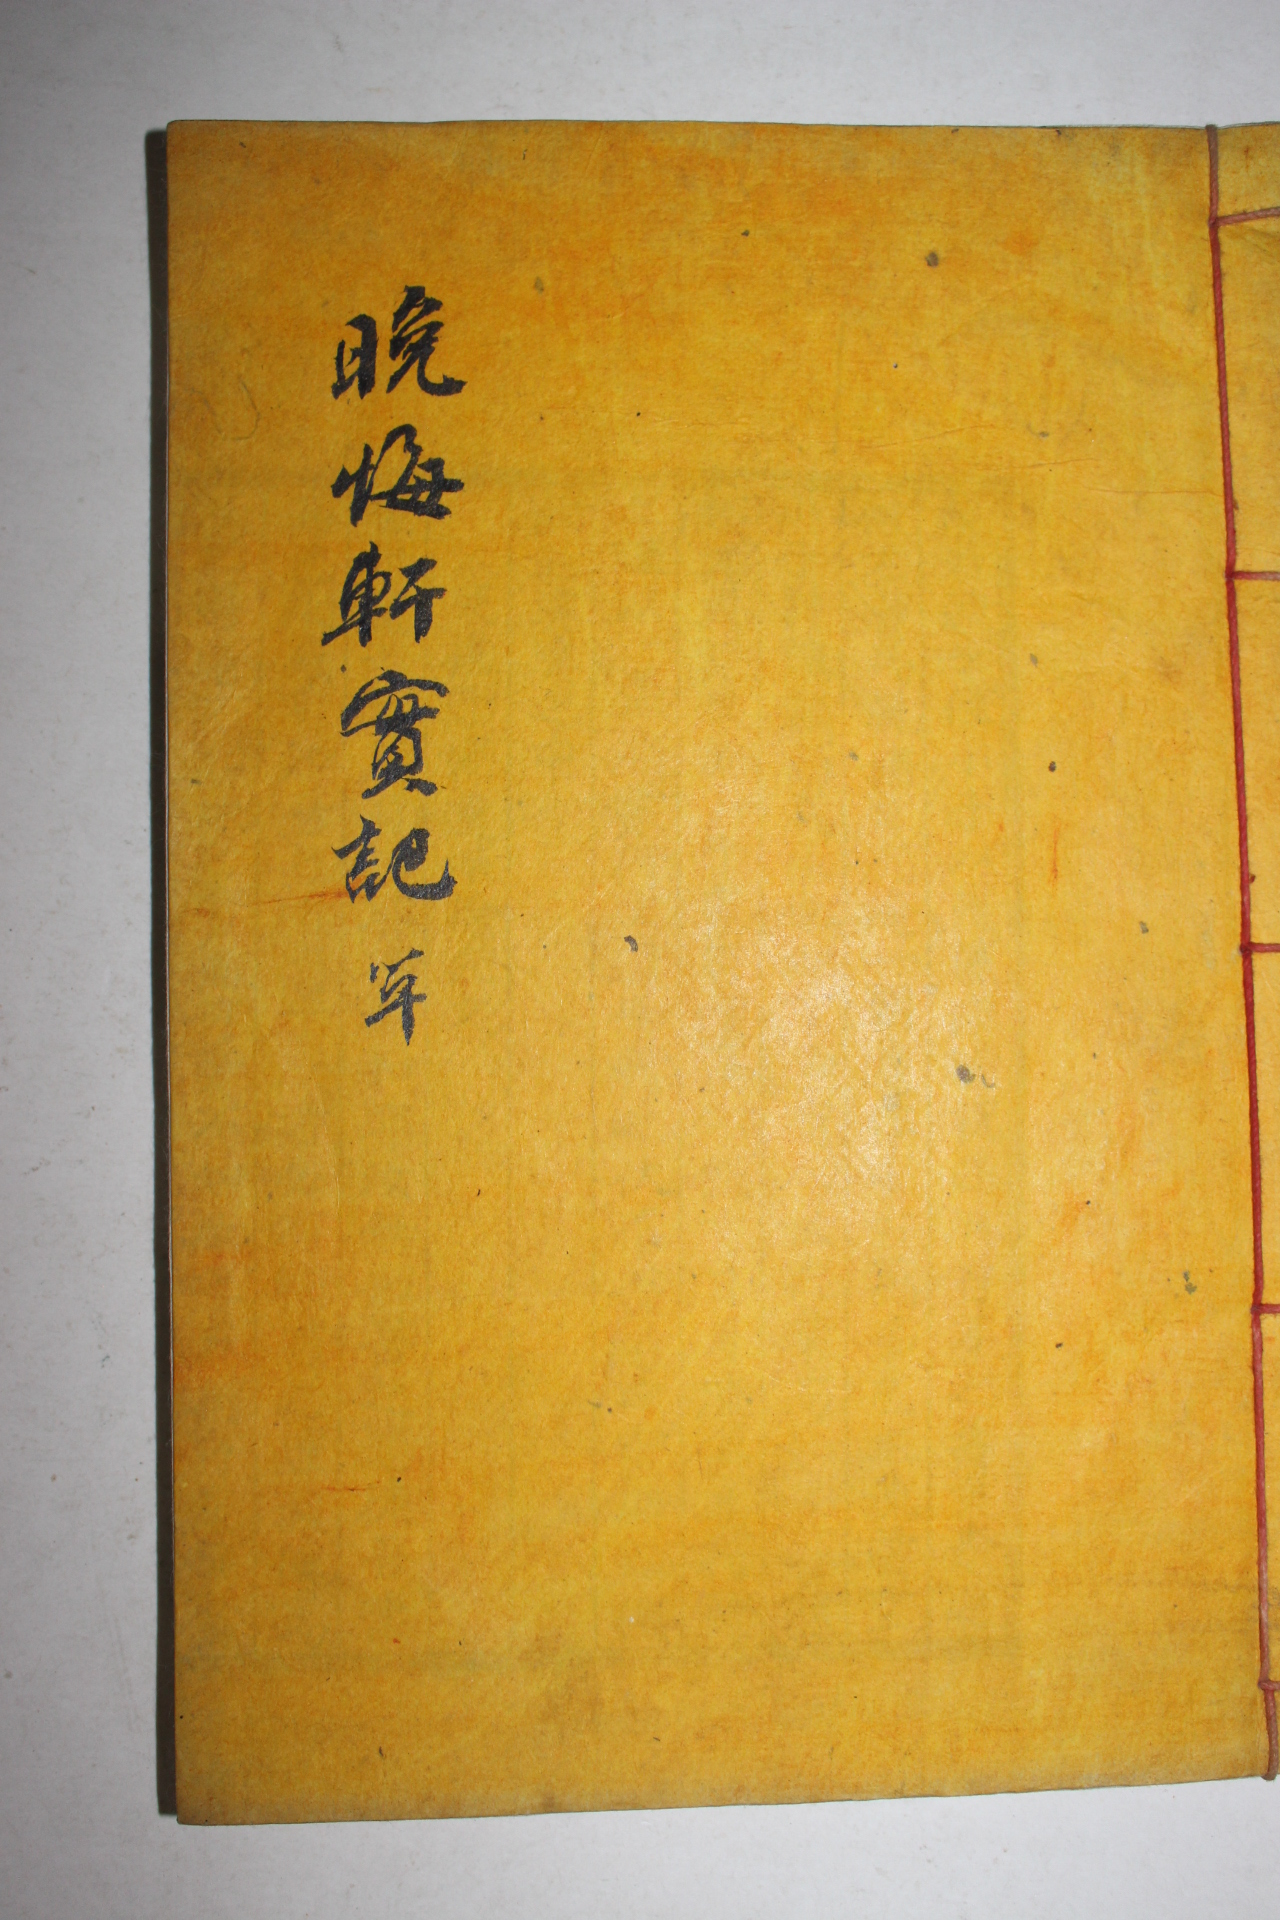 晩悔軒實記 單